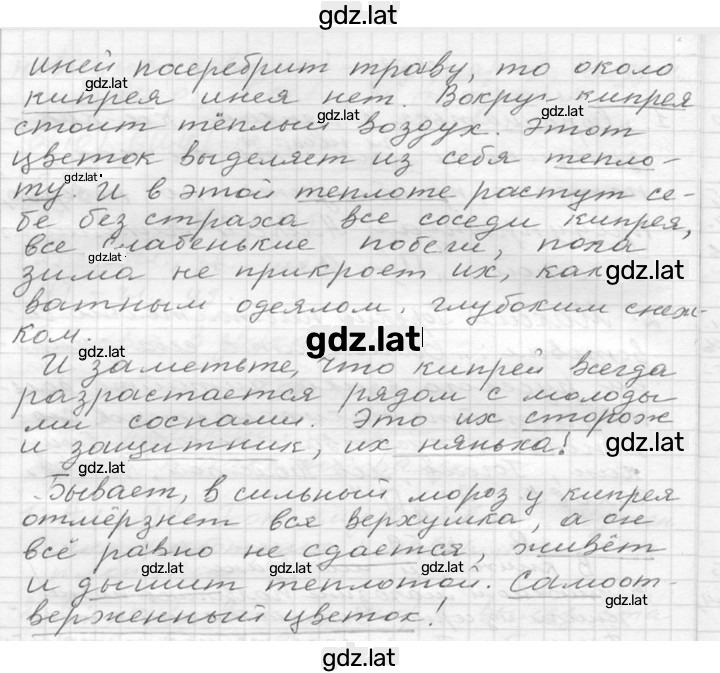 gdz.lat
иней посеребрит траву, то около
gdz.lat
кипрея инея нет. Вокруг кипрея
gdz.lat gdz.lat
стоит тёплый воздух. Этот
цветок выделяет из себя тепло-
gdz.lat
ту. И в этой теплоте растут се-
бе без страха все соседи кипрея,
все слабенькие побеги, пока
gdz.lat
зима не прикроет их, как gdz.lat
ватным одеялом, глубоким снеж-
ком. gdz.lat
gdz.lat
И заметьте, что кипрей всегда
разрастается рядом с молоды
ми соснами. Это их сторож
и защитник, их нянька! gdz.lat
gdz.lat
Бывает, в сильный мороз у кипрея
отмёрзнет вся верхушка, а он
всё равно не сдается, живёт
gdz.lat gdz.lat gdz.lat
и дышит теплотой. Самоот-
gdz.lat
верженный цветок!
gdz.lat